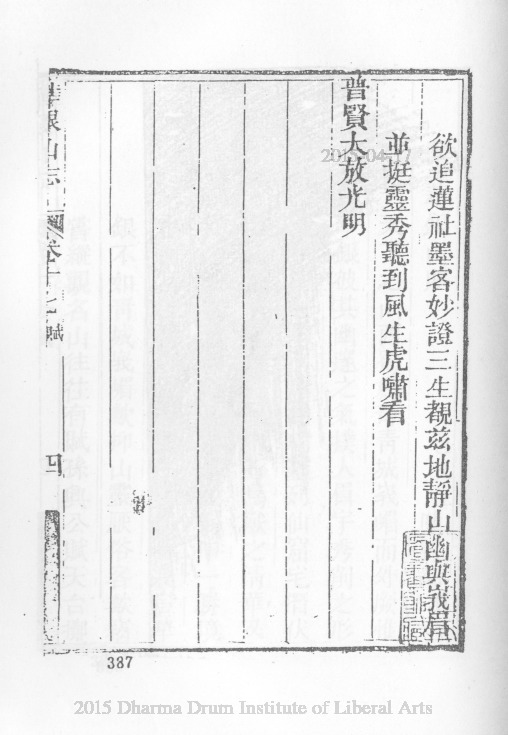 欲追蓮社墨客妙證三生覩茲地靜山幽與峩眉
並挺靈秀聽到風生虎嘯看
普賢大放光明
山志
卷十七 賦
四
387
2015 Dharma Drum Institute of Liberal Arts